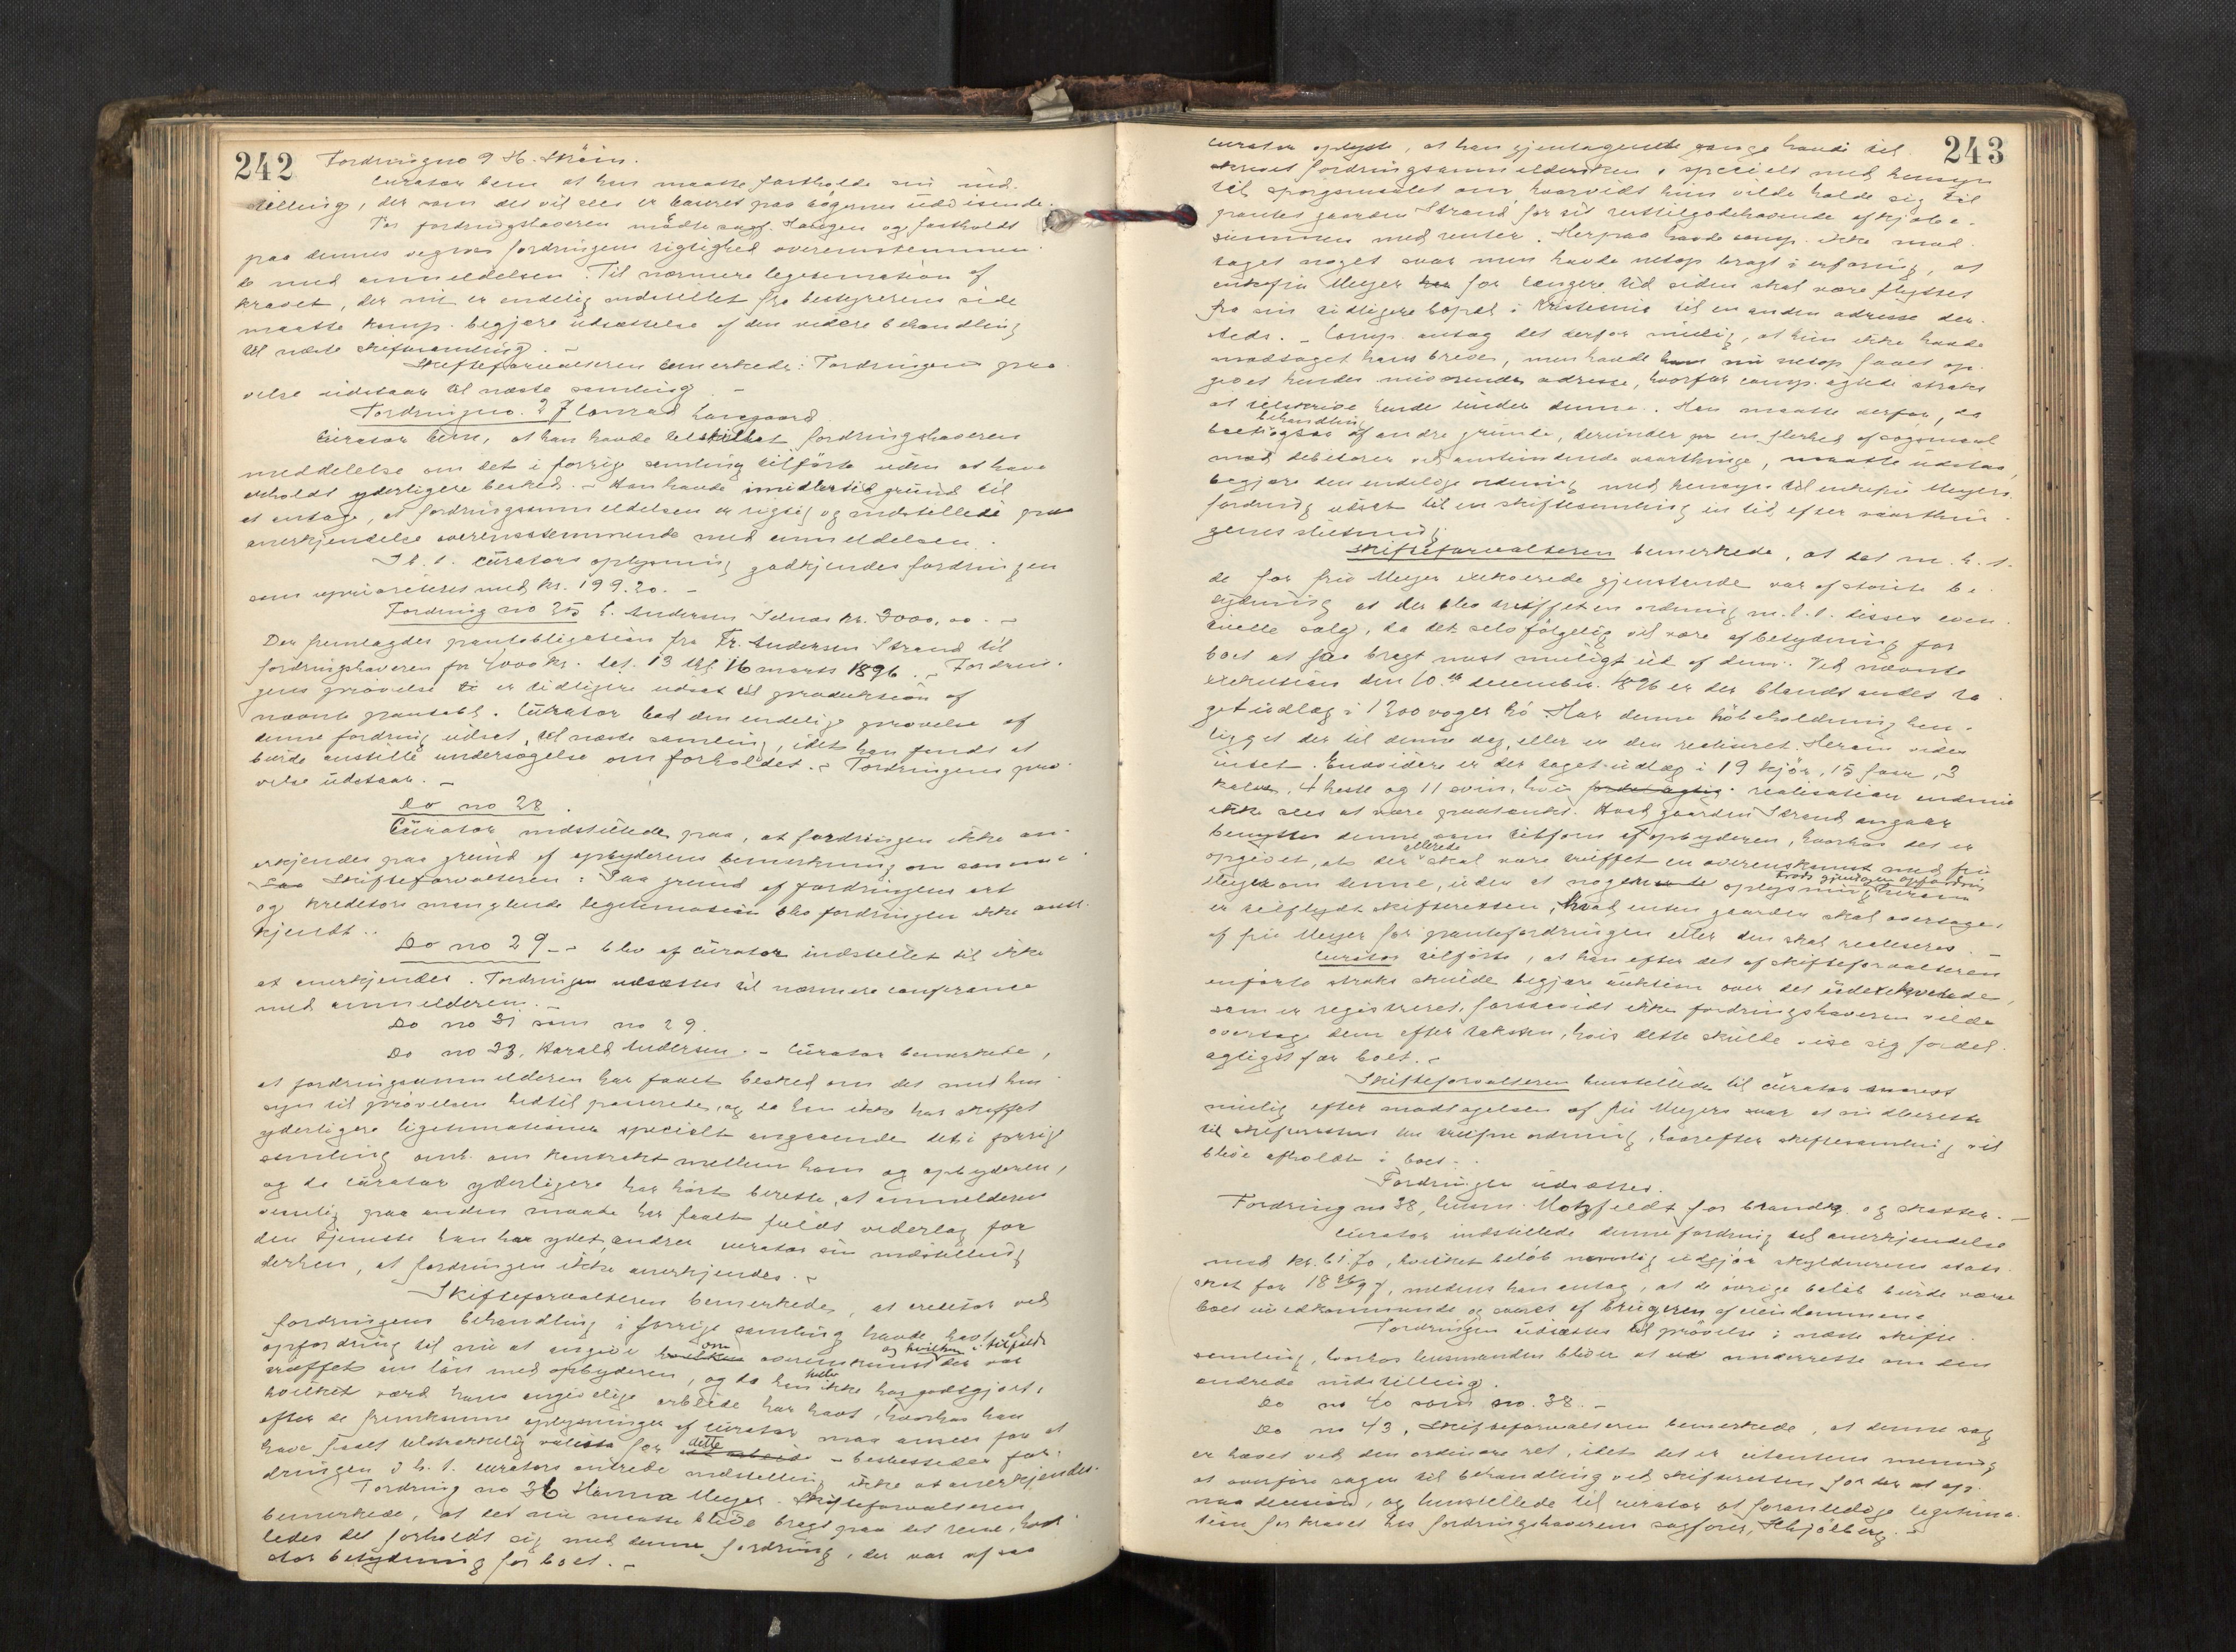 242
Fordring no 9 H. Skåin.
Curator bem at han maatte fastholde sin ind-
stilling, der som det vil sees er baseret paa bøgernes udvisende.
For fordringshaveren mødte sagf. Haugen og fastholdt
paa dennes vegne fordringens rigtighed overensstemmen-
de med anmeldelsen. Til nærmere legitimation af
kravet, der nu er endelig indstillet fra bestyrerens side
maatte komp. begjære udsættelse af den videre behandling
til næste skiftesamling. -
Skifteforvalteren bemerkede: Fordringens prø-
velse udstaar til næste samling -
Fordring no. 27 Conrad Langaard
Curator bem, at han havde tilstillet fordringshaveren
meddelelse om det i forrige samling tilførte uden at have
erholdt yderligere besked. - Han havde imidlertid grund til
at antage, at fordringsanmeldelsen er rigtig og indstillede paa
anerkjendelse overensstemmende med anmeldelsen.
I h. t. curators oplysning godkjendes fordringen
som uprioriteret med kr. 199.20. -
Fordring no 25 E. Andersen Idenæs kr. 3000,00. -
Der fremlagdes pantobligation fra Fr. Andersen Strand til
fordringshaveren for 4000 kr. dat. 13 tgl 16 marts 1896. - Fordrin-
gens prøvelse er tidligere udsat til produktion af
nævnte pantobl. Curator bad den endelige prøvelse af
denne fordring udsat, til næste samling, idet han fandt at
burde anstille undersøgelse om forholdet. - Fordringens prø-
velse udstaar. -
Do no 28.
Curator indstillede paa, at fordringen ikke an-
erkjendes paa grund af opbyderens bemerkning om samme
Skifteforvalteren: Paa grund af fordringens art
og kreditors manglende legitimation blev fordringen ikke aner-
kjendt. -
Do no 29 - - blev af curator indstillet til ikke
at anerkjendes. Fordringen udsættes til nærmere conferance
med anmelderen. -
Do no 31 som no 29.
Do no 33, Harald Andersen. - Curator bemerkede,
at fordringsanmelderen har faaet besked om det med hen-
syn til prøvelsen hidtil passerede, og da han ikke har skaffet
yderligere legitimationer specielt angaaende det i forrige
samling omh. om kontrakt mellem ham og opbyderen,
og da curator yderligere har hørt berette, at anmelderen
venlig paa anden maade har faaet fuldt vederlag for
den tjeneste han har ydet, ændrer curator sin indstilling
derhen, at fordringen ikke anerkjendes. -
Skifteforvalteren bemerkede, at creditor ved
fordringens behandling i forrige samling havde havt
opfordring til nu at angive om og hvilken i tilfælde overenskomst der var
truffet om løn med opbyderen, og da han heller ikke har godtgjort,
hvilket værd hans angivelige arbeide har havt, hvorhos han
efter de fremkomne oplysninger af curator maa ansees for at
have faaet tilstrækkelig valuta for dette - bestemtes for-
dringen i h. t. curators ændrede indstilling ikke at anerkjendes.
Fordring no 36 Hanna Meyer. Skifteforvalteren
bemerkede, at det nu maatte blive bragt paa det rene, hvor-
ledes det forholdt sig med denne fordring, der var af saa
stor betydning for boet. -
243
Curator oplyste, at han gjentagende gange havde til-
skrevet fordringsanmeldersken, specielt med hensyn
til spørgsmaalet om, hvorvidt hun vilde holde sig til
pantet gaarden Strand for sit resttilgodehavende af kjøbe-
summen med renter. Herpaa havde comp. ikke mod-
taget noget svar men havde netop bragt i erfaring, at
enkefru Meyer for længere tid siden skal være flyttet
fra sin tidligere bopæl i Kristiania til en anden adresse der-
steds. - Comp. antog det derfor mulig, at hun ikke havde
modtaget hans breve, men havde nu netop faaet op-
givet hendes nuværende adresse, hvorfor comp. agtede straks
at tilskrive hende under denne. Han maatte derfor, da
behandling af andre grunde, derunder en flerhed af søgsmaal
mod debitorer ved anstundende vaarthinge, maatte udstaa,
begjære den endelige ordning med hensyn til enkefru Meyers
fordring udsat til en skiftesamling en tid efter vaarthin-
genes slutning.
Skifteforvalteren bemerkede, at det m. h. t.
de for fru Meyer exekverede gjenstande var af største be-
tydning at der blev truffet en ordning m. h. t. disses even-
tuelle salg, da det selvfølgelig vil være af betydning for
boet at faa bragt mest muligt ud af dem. Ved nævnte
exekution den 10.de december 1896 er der blandt andet ta-
get udlæg i 1300 voger hø. Har denne høbeholdning hen-
ligget der til denne dag, eller er den realiseret. Herom vides
intet. Endvidere er der taget udlæg i 19 kjør, 15 faar, 3
kalve, 4 heste og 11 svin, hvis realisation endnu
ikke sees at være paatænkt. Hvad gaarden Strand angaar
benyttes denne som tilforn af opbyderen, hvorhos det er
opgivet, at der allerede skal være truffet en overenskomst med fru
Meyer om denne, uden at nogen oplysning herom trods gjentagen opfordring
er tilflydt skifteretten, hvad enten gaarden skal overtages
af fru Meyer for pantefordringen eller den skal realiseres.
Curator tilførte, at han efter det af skifteforvalteren
anførte straks skulde begjære auktion over det udexekverede,
som er registreret, forsaavidt ikke fordringshaveren vilde
overtage dem efter taksten, hvis dette skulde vise sig fordel-
agtigst for boet. -
Skifteforvalteren henstillede til curator snarest
mulig efter modtagelsen af fru Meyers svar at indberette
til skifteretten den trufne ordning, hvorefter skiftesamling vil
blive afholdt i boet. -
Fordringen udsættes.
Fordring no 38, lensm. Motzfeldt for brandk. og skatter. -
Curator indstillede denne fordring til anerkjendelse
med kr. 61.70, hvilket beløb nemlig udgjør skyldnerens stats-
skat for 1896/97, medens han antog, at de øvrige beløb burde være
boet uvedkommende og svares af brugeren af eiendommene.
Fordringen udsættes til prøvelse i næste skifte-
samling, hvorhos lensmanden bliver at underrette om den
ændrede indstilling.
Do no 40 som no. 38. -
Do no 43, Skifteforvalteren bemerkede, at denne sag
er hævet ved den ordinære ret, idet det er citantens mening
at overføre sagen til behandling ved skifteretten for der at op-
naa decision, og henstillede til curator at foranledige legitima-
tion for kravet hos fordringshaverens sagfører, Schjølberg. -